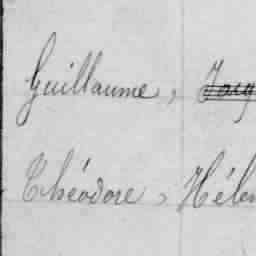 Guillaume, Jacq
Théodore, Hélen